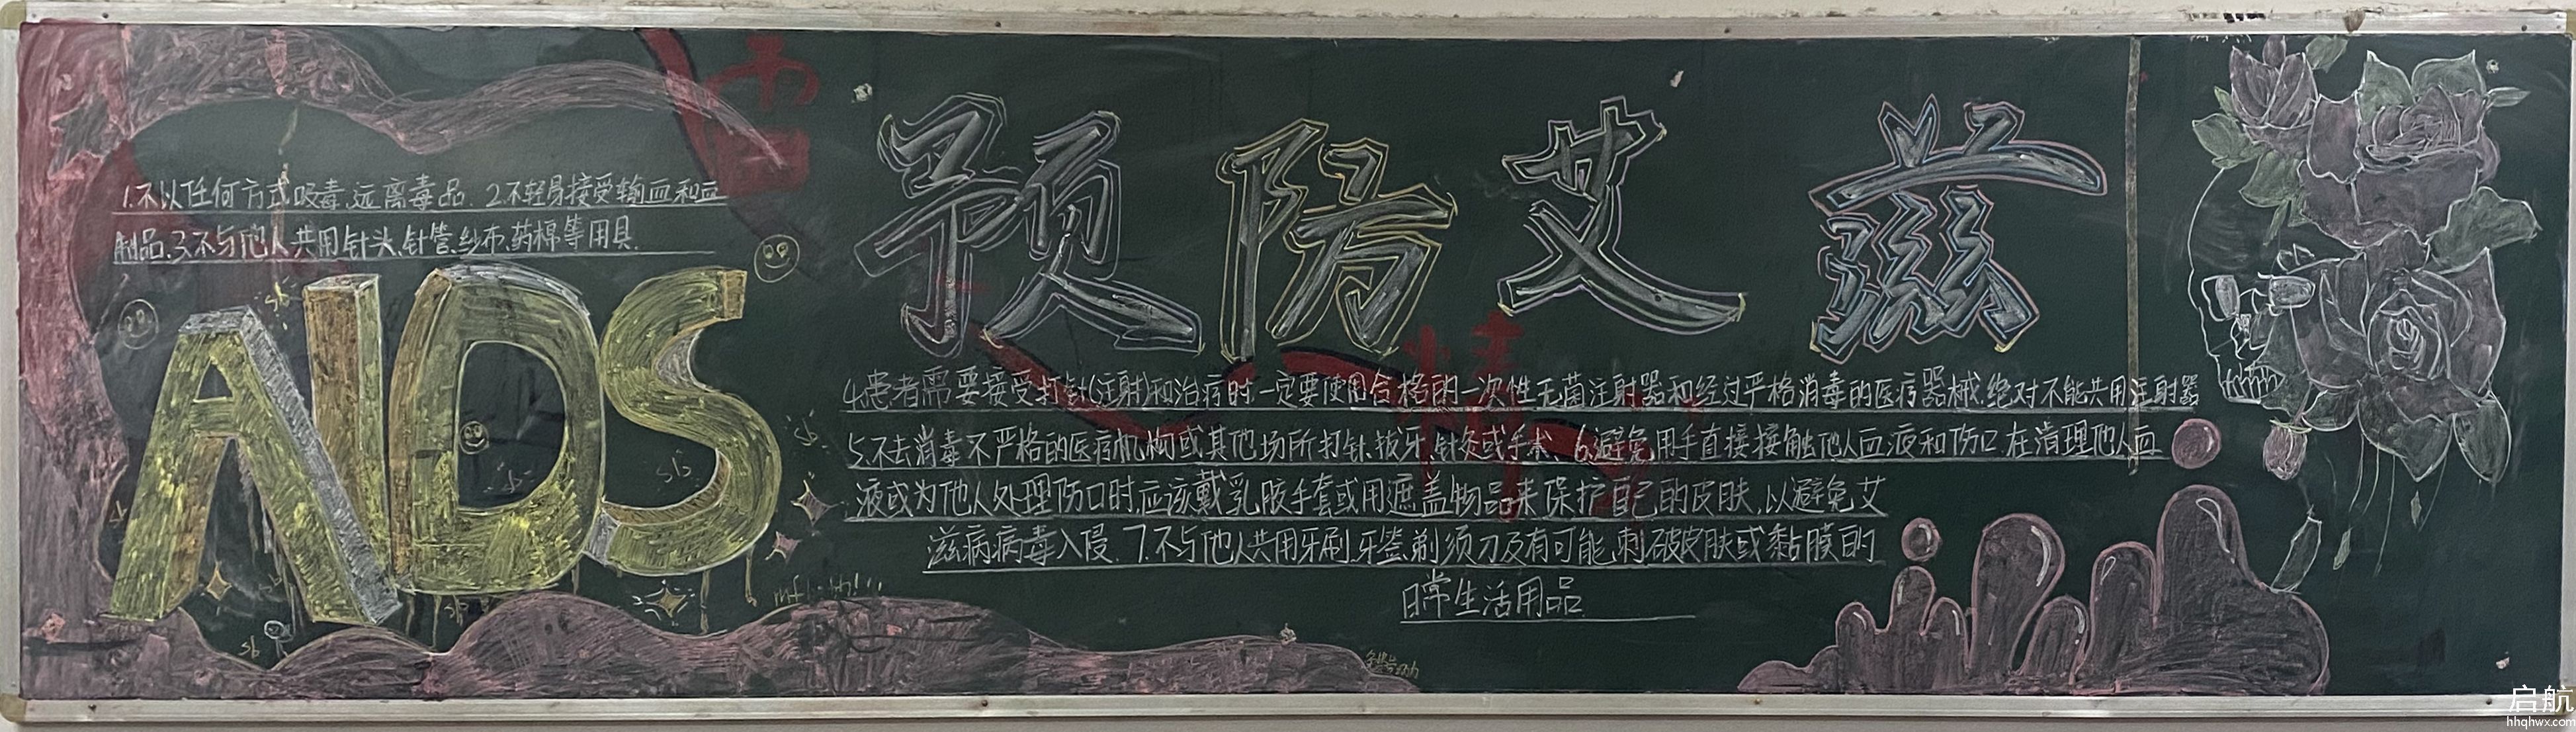 1.不以任何方式吸毒,远离毒品. 2.不轻易接受输血和血
制品.3.不与他人共用针头、针管、纱布、药棉等用具.
AIDS
预防艾滋
4.患者需要接受打针(注射)和治疗时.一定要使用合格的一次性无菌注射器和经过严格消毒的医疗器械.绝对不能共用注射器
5.不去消毒不严格的医疗机构或其他场所打针、拔牙、针灸或手术. 6.避免用手直接接触他人血液和伤口.在清理他人血
液或为他人处理伤口时,应该戴乳胶手套或用遮盖物品来保护自己的皮肤,以避免艾
滋病病毒入侵. 7.不与他人共用牙刷、牙签、剃须刀及有可能刺破皮肤或黏膜的
日常生活用品
sb
sb
sb
sb
sb
启航
hhqhwx.com